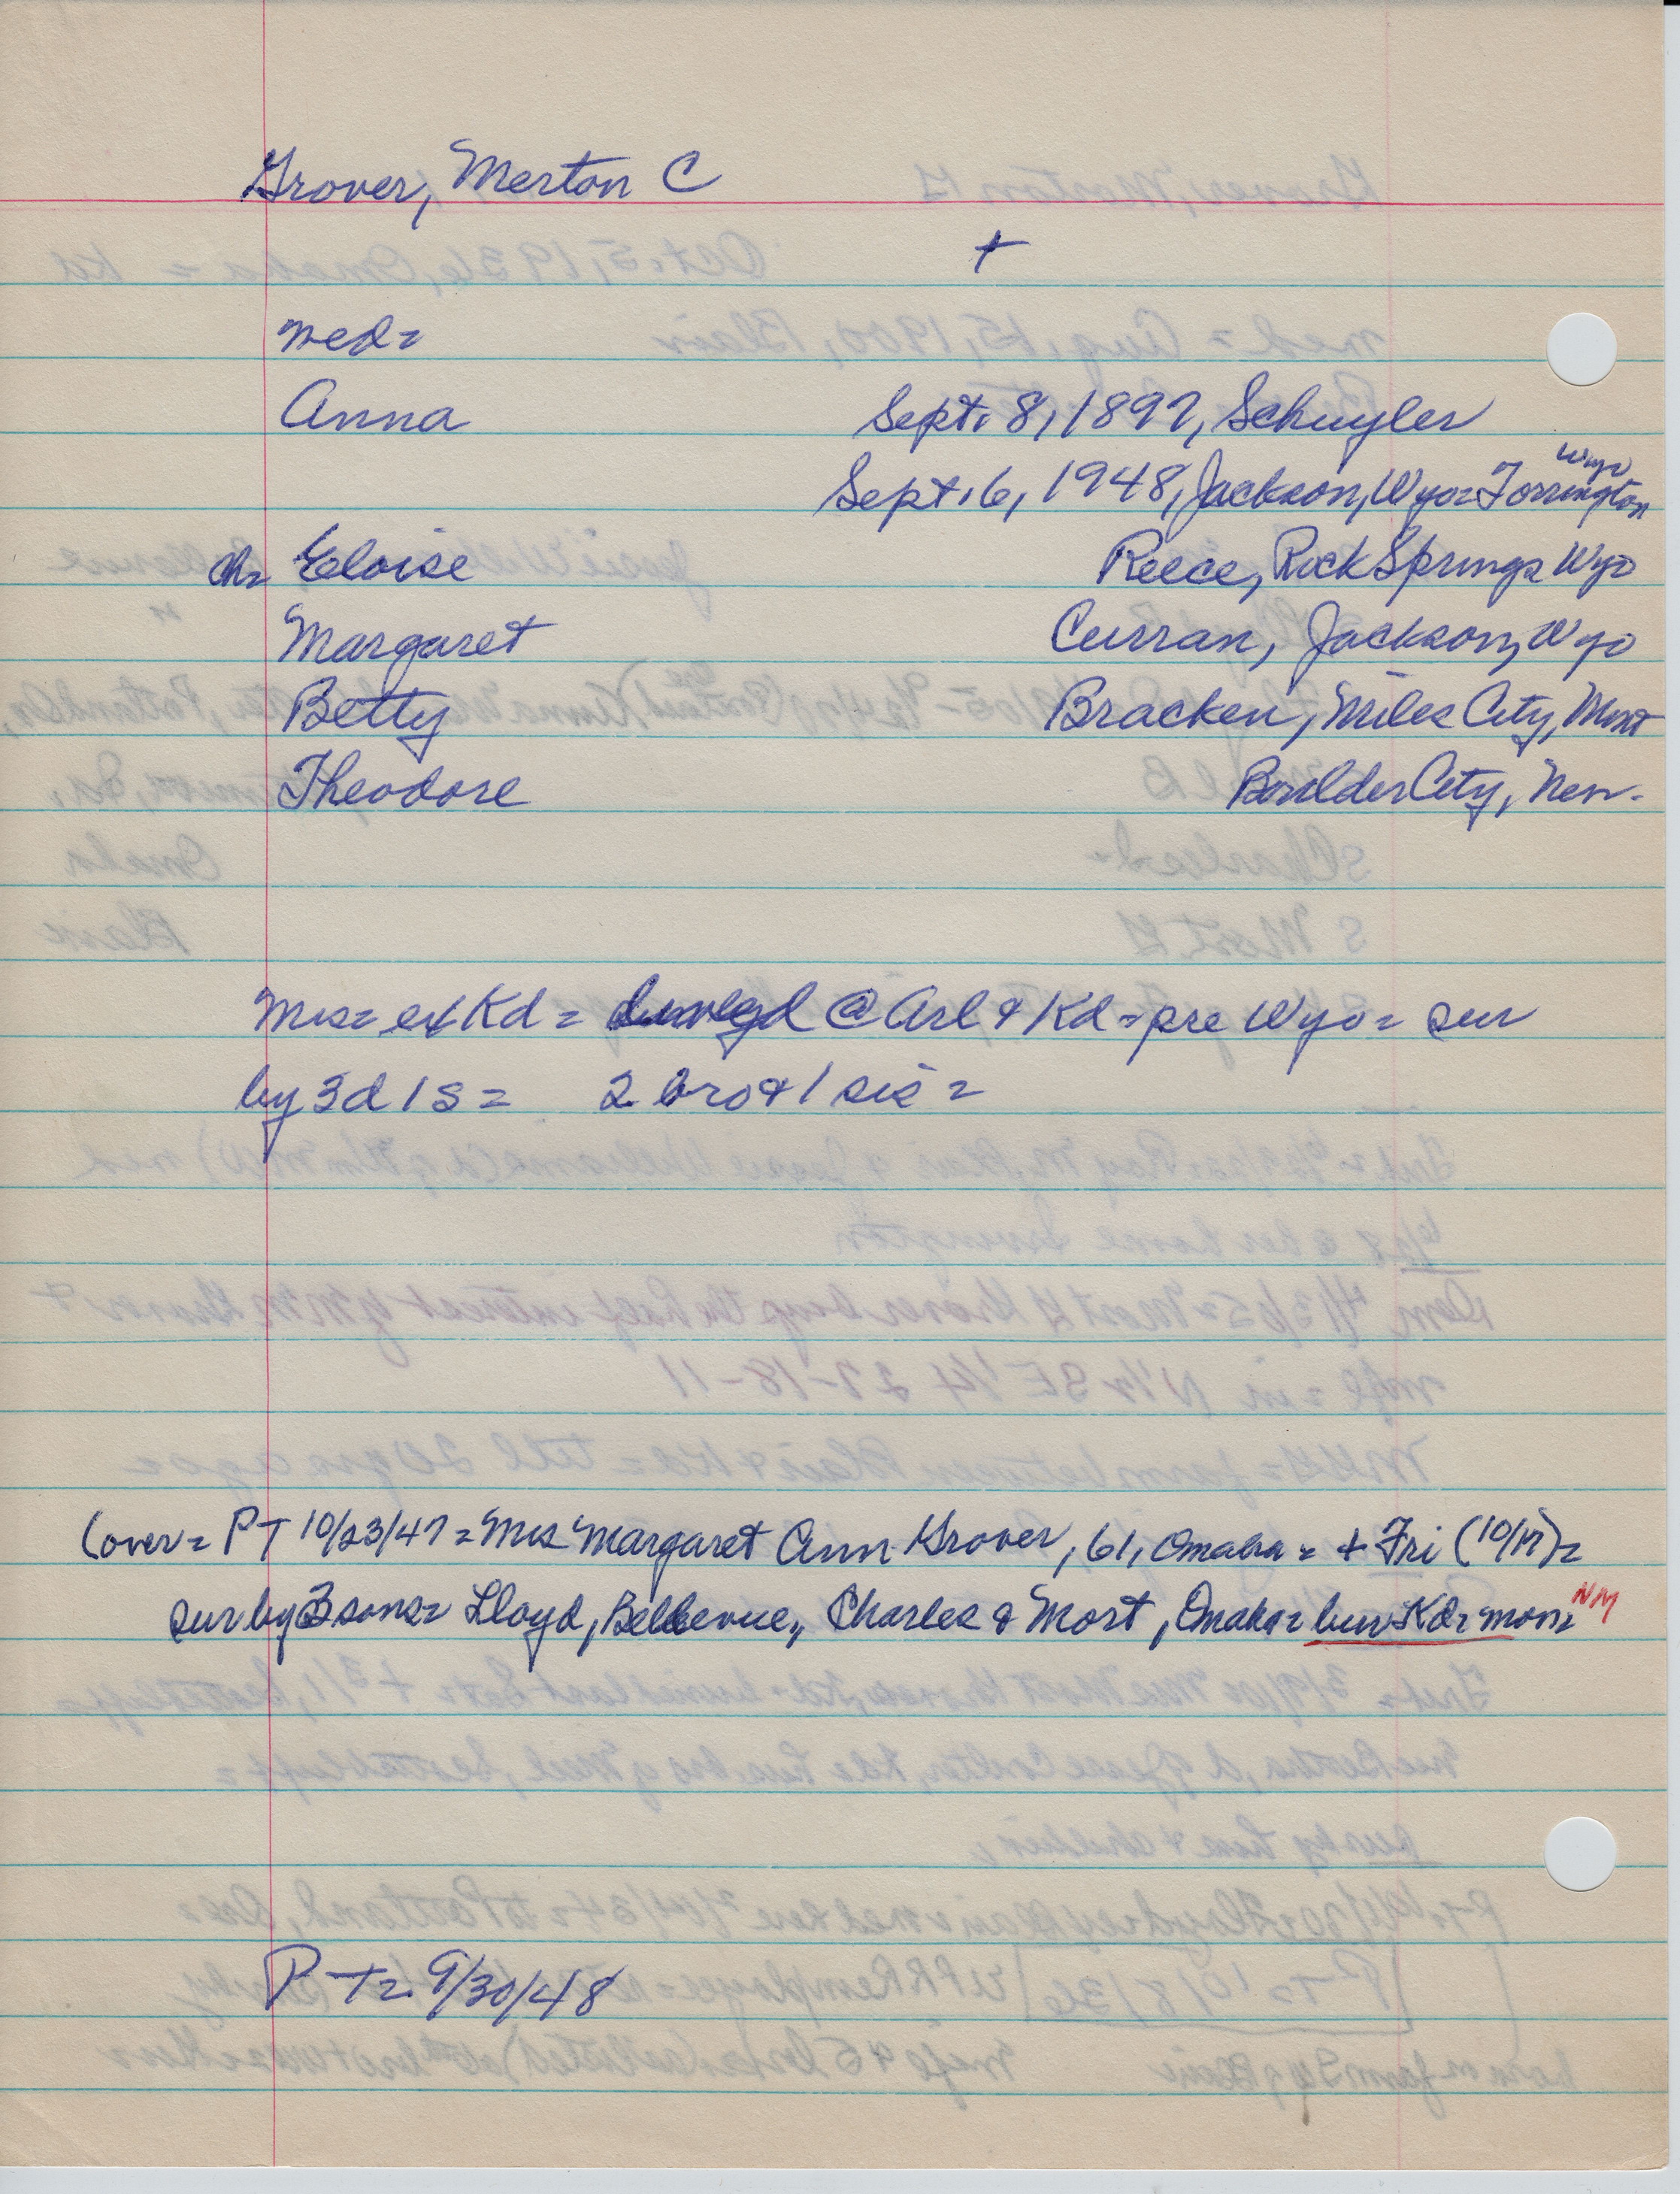 Grover, Merton C
+
med=
Anna Sept. 8, 1897, Schuyler
Wyo
Sept. 6, 1948, Jackson, Wyo= Torrington
ch= Eloise Reece, Rock Springs Wyo
Margaret Curran, Jackson, Wyo
Betty Bracken, Miles City, Mont
Theodore Boulder City, Nev.
Mrs= ex Kd = @ Arl & Kd = pre Wyo = sur
by 3d 1s = 2 bro & 1 sis =
(over = PT 10/23/47 = Mrs Margaret Ann Grover, 61, Omaha = + Fri (10/17) =
sur by 3 sons= Lloyd, Bellevue,, Charles & Mort, Omaha= bur Kd= mon= NM
P T= 9/30/48